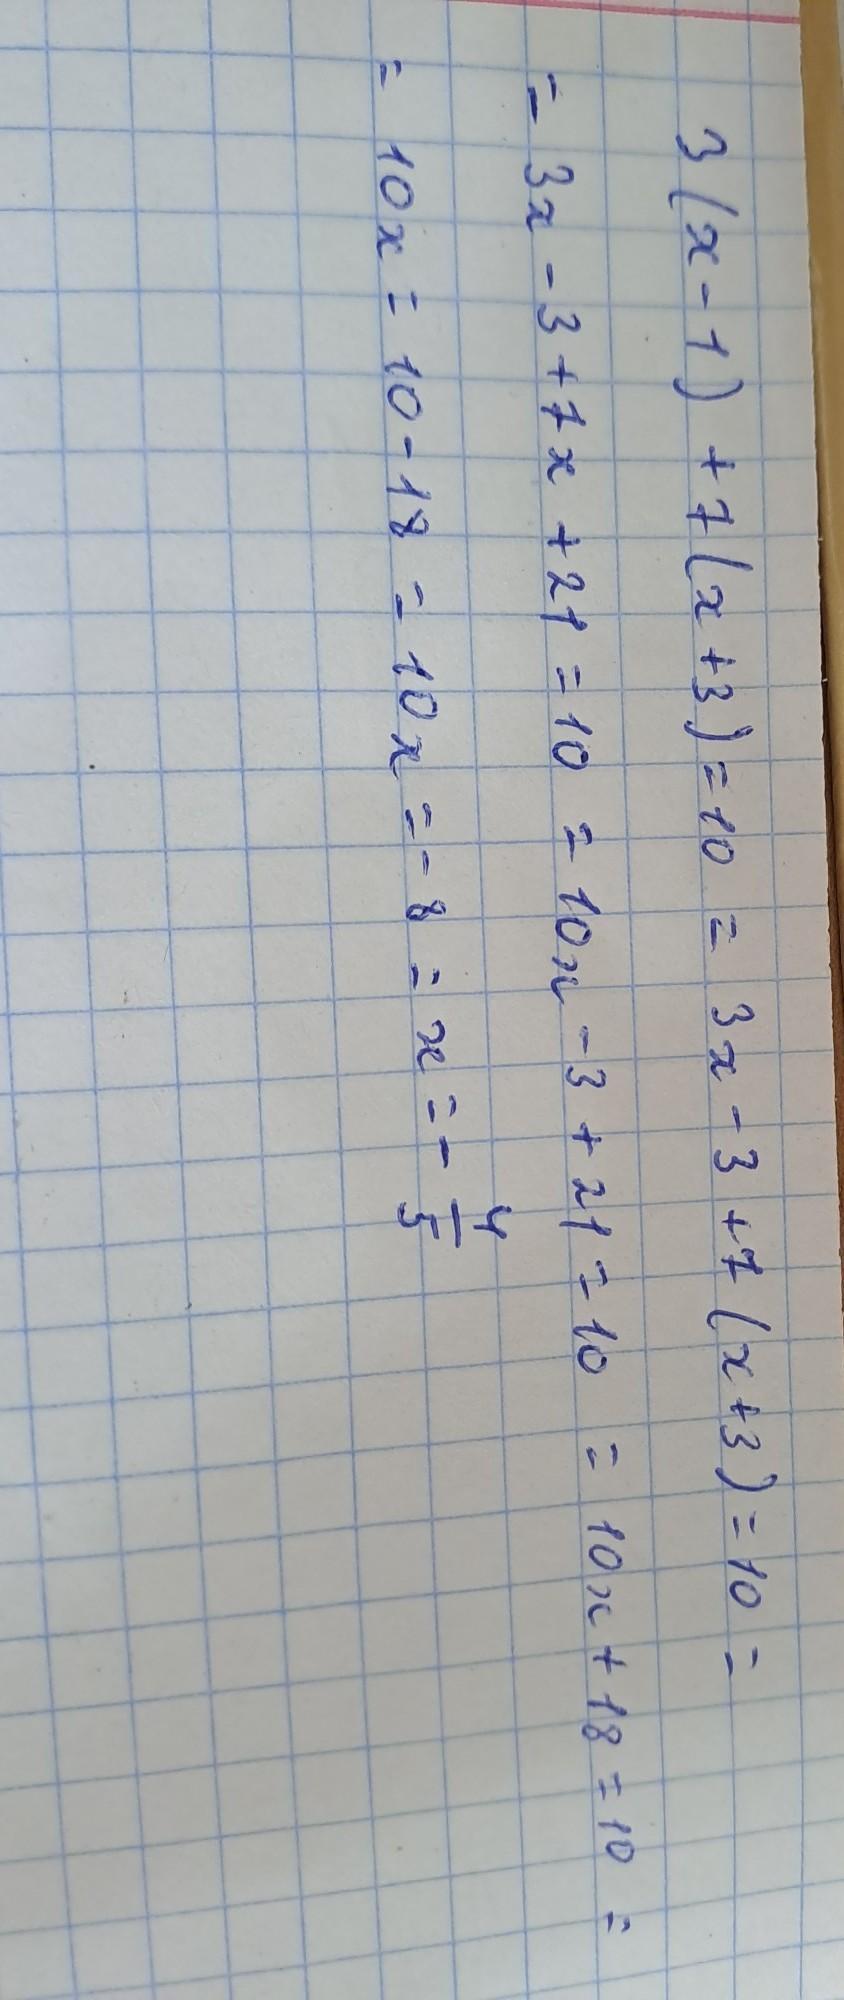 3(x-1)+7(x+3)=10 = 3x-3+7(x+3)=10 =
= 3x-3+7x+21=10 = 10x-3+21=10 = 10x+18=10 =
= 10x=10-18 = 10x=-8 = x=-4/5